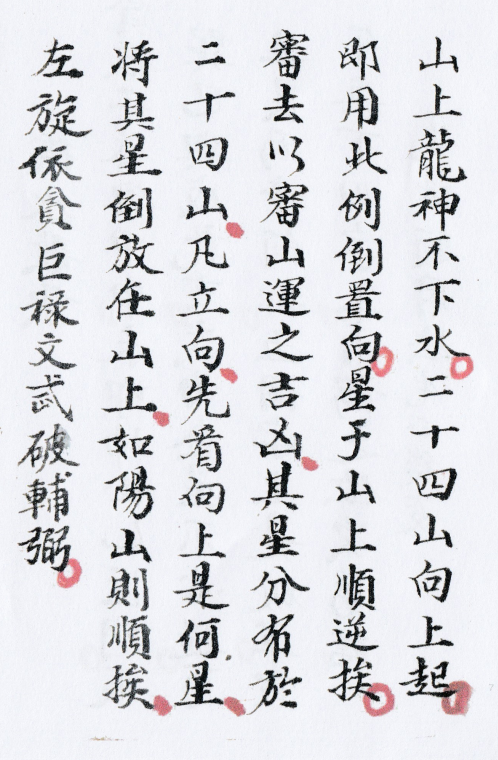 山上龍神不下水二十四山向上起
即用此例倒置向星于山上順逆挨
審去以審山運之吉凶其星分布於
二十四山凡立向先看向上是何星
将其星倒放在山上如陽山則順挨
左旋依貪巨祿文武破輔弼